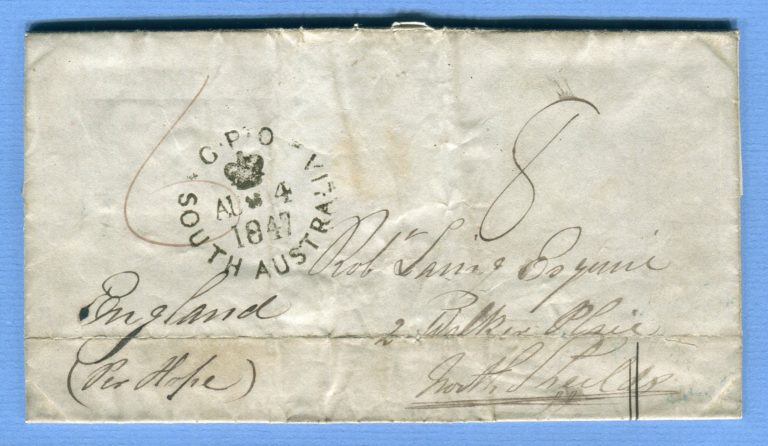 6
8
G·P·O
AU 4
1847
SOUTH AUSTRALIA
Robt Laing Esquire
England
2 Walker Place
(Per Hope)
North Shields